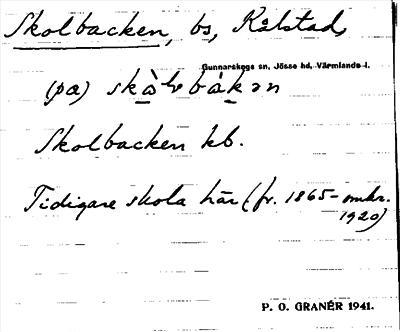 Skolbacken, bs, Kålstad,
Gunnarskogs sn, Jösse hd, Värmlands l.
(på) skὰ̠lvbàk̠ən
Skolbacken kb.
Tidigare skola här (fr. 1865–omkr.
1920)
P. O. GRANÉR 1941.